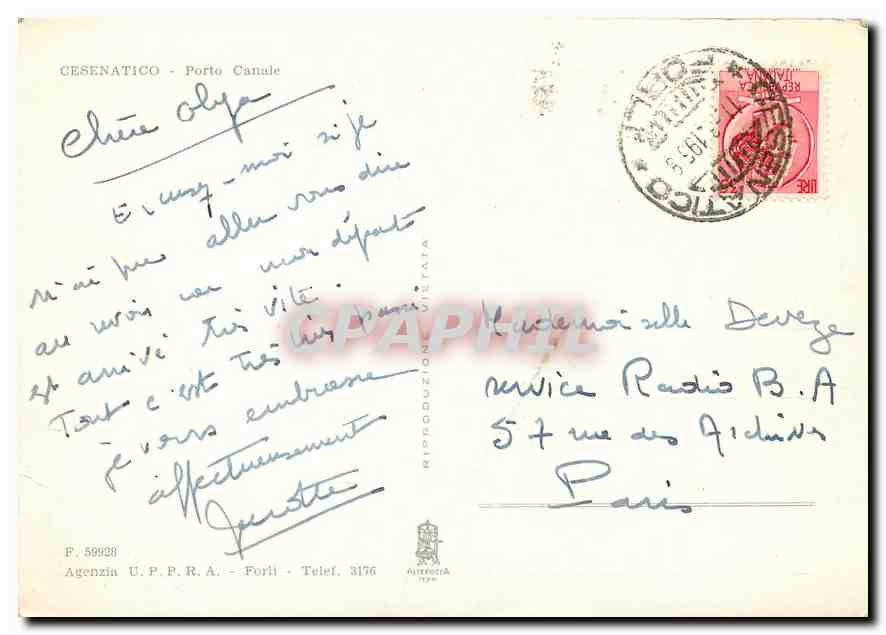 CESENATICO - Porto Canale
Chère Olga
Excusez-moi si je
n'ai pu aller vous dire
au revoir car mon départ
est arrivé très vite.
Tout c'est très bien passé
je vous embrasse
affectueusement
Mademoiselle Deveze
service Radio B.A
57 rue des Archives
Paris
RIPRODUZIONE VIETATA
F. 59928
Agenzia U. P. P. R. A. - Forlì - Telef. 3176
ALTEROCCA
TERNI
CESENATICO * FORLI *
REPUBBLICA
ITALIANA
LIRE
CPAPHIL